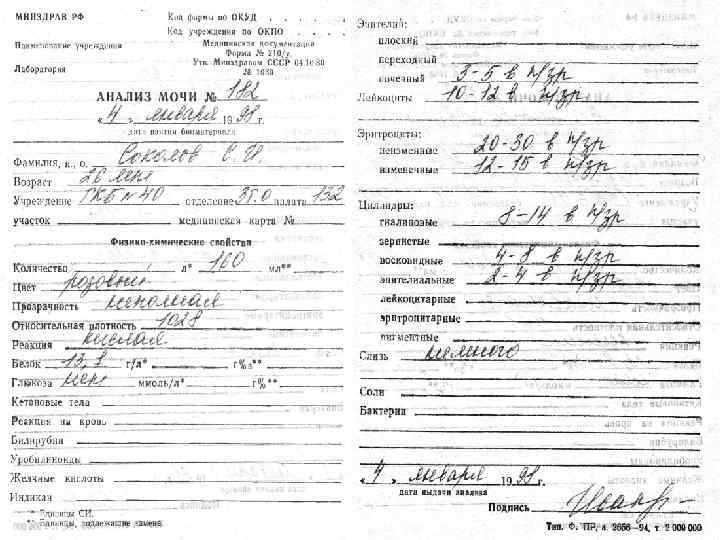 МИНЗДРАВ РФ
Код формы по ОКУД . . . .
Код учреждения по ОКПО . . . .
Наименование учреждения
Медицинская документация
Форма № 210/у
Утв. Минздравом СССР 04.10.80
№ 1030
Лаборатория
АНАЛИЗ МОЧИ № 182
« 4 » января 1998 г.
дата взятия биоматериала
Фамилия, и., о. Соколов С. И.
Возраст 26 лет
Учреждение ГКБ №40 отделение ЗТ.О палата 132
участок медицинская карта №
Физико-химические свойства
Количество л* 160 мл**
Цвет розовый
Прозрачность неполная
Относительная плотность 1028
Реакция кислая
Белок 13,3 г/л* г%**
Глюкоза нет ммоль/л* г%**
Кетоновые тела
Реакция на кровь
Билирубин
Уробилиноиды
Желчные кислоты
Индикан
* Единицы СИ.
** Единицы, подлежащие замене.
Эпителий:
плоский
переходный
почечный 3-5 в п/зр
Лейкоциты 10-12 в п/зр
Эритроциты:
неизмененные 20-30 в п/зр
измененные 12-15 в п/зр
Цилиндры:
гиалиновые 8-14 в п/зр
зернистые
восковидные 4-8 в п/зр
эпителиальные 2-4 в п/зр
лейкоцитарные
эритроцитарные
пигментные
Слизь немного
Соли
Бактерии
« 4 » января 1998 г.
дата выдачи анализа
Подпись
Тип. Ф. ПР, з. 2656—94, т. 2 000 000